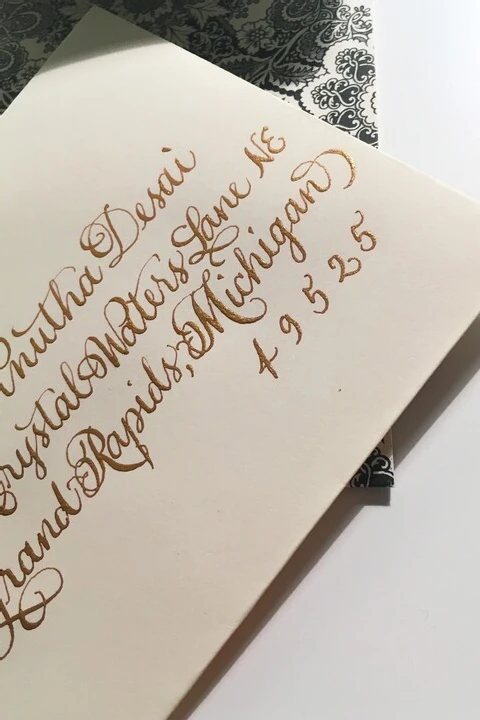 Desai
Crystal Waters Lane NE
Grand Rapids, Michigan
49525